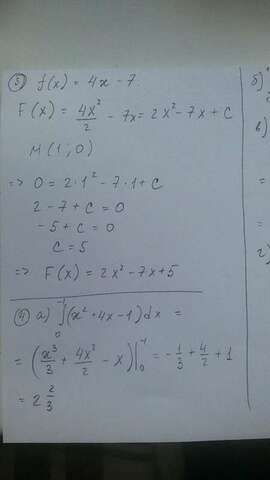 ③ f(x) = 4x - 7.
F(x) = 4x²/2 - 7x = 2x² - 7x + C
M(1; 0)
=> 0 = 2·1² - 7·1 + C
2 - 7 + C = 0
-5 + C = 0
C = 5
=> F(x) = 2x² - 7x + 5
④ а) ∫₀⁻¹ (x² + 4x - 1) dx =
= (x³/3 + 4x²/2 - x)|₀⁻¹ = -1/3 + 4/2 + 1
= 2 2/3
б)
в)
=
=
г)